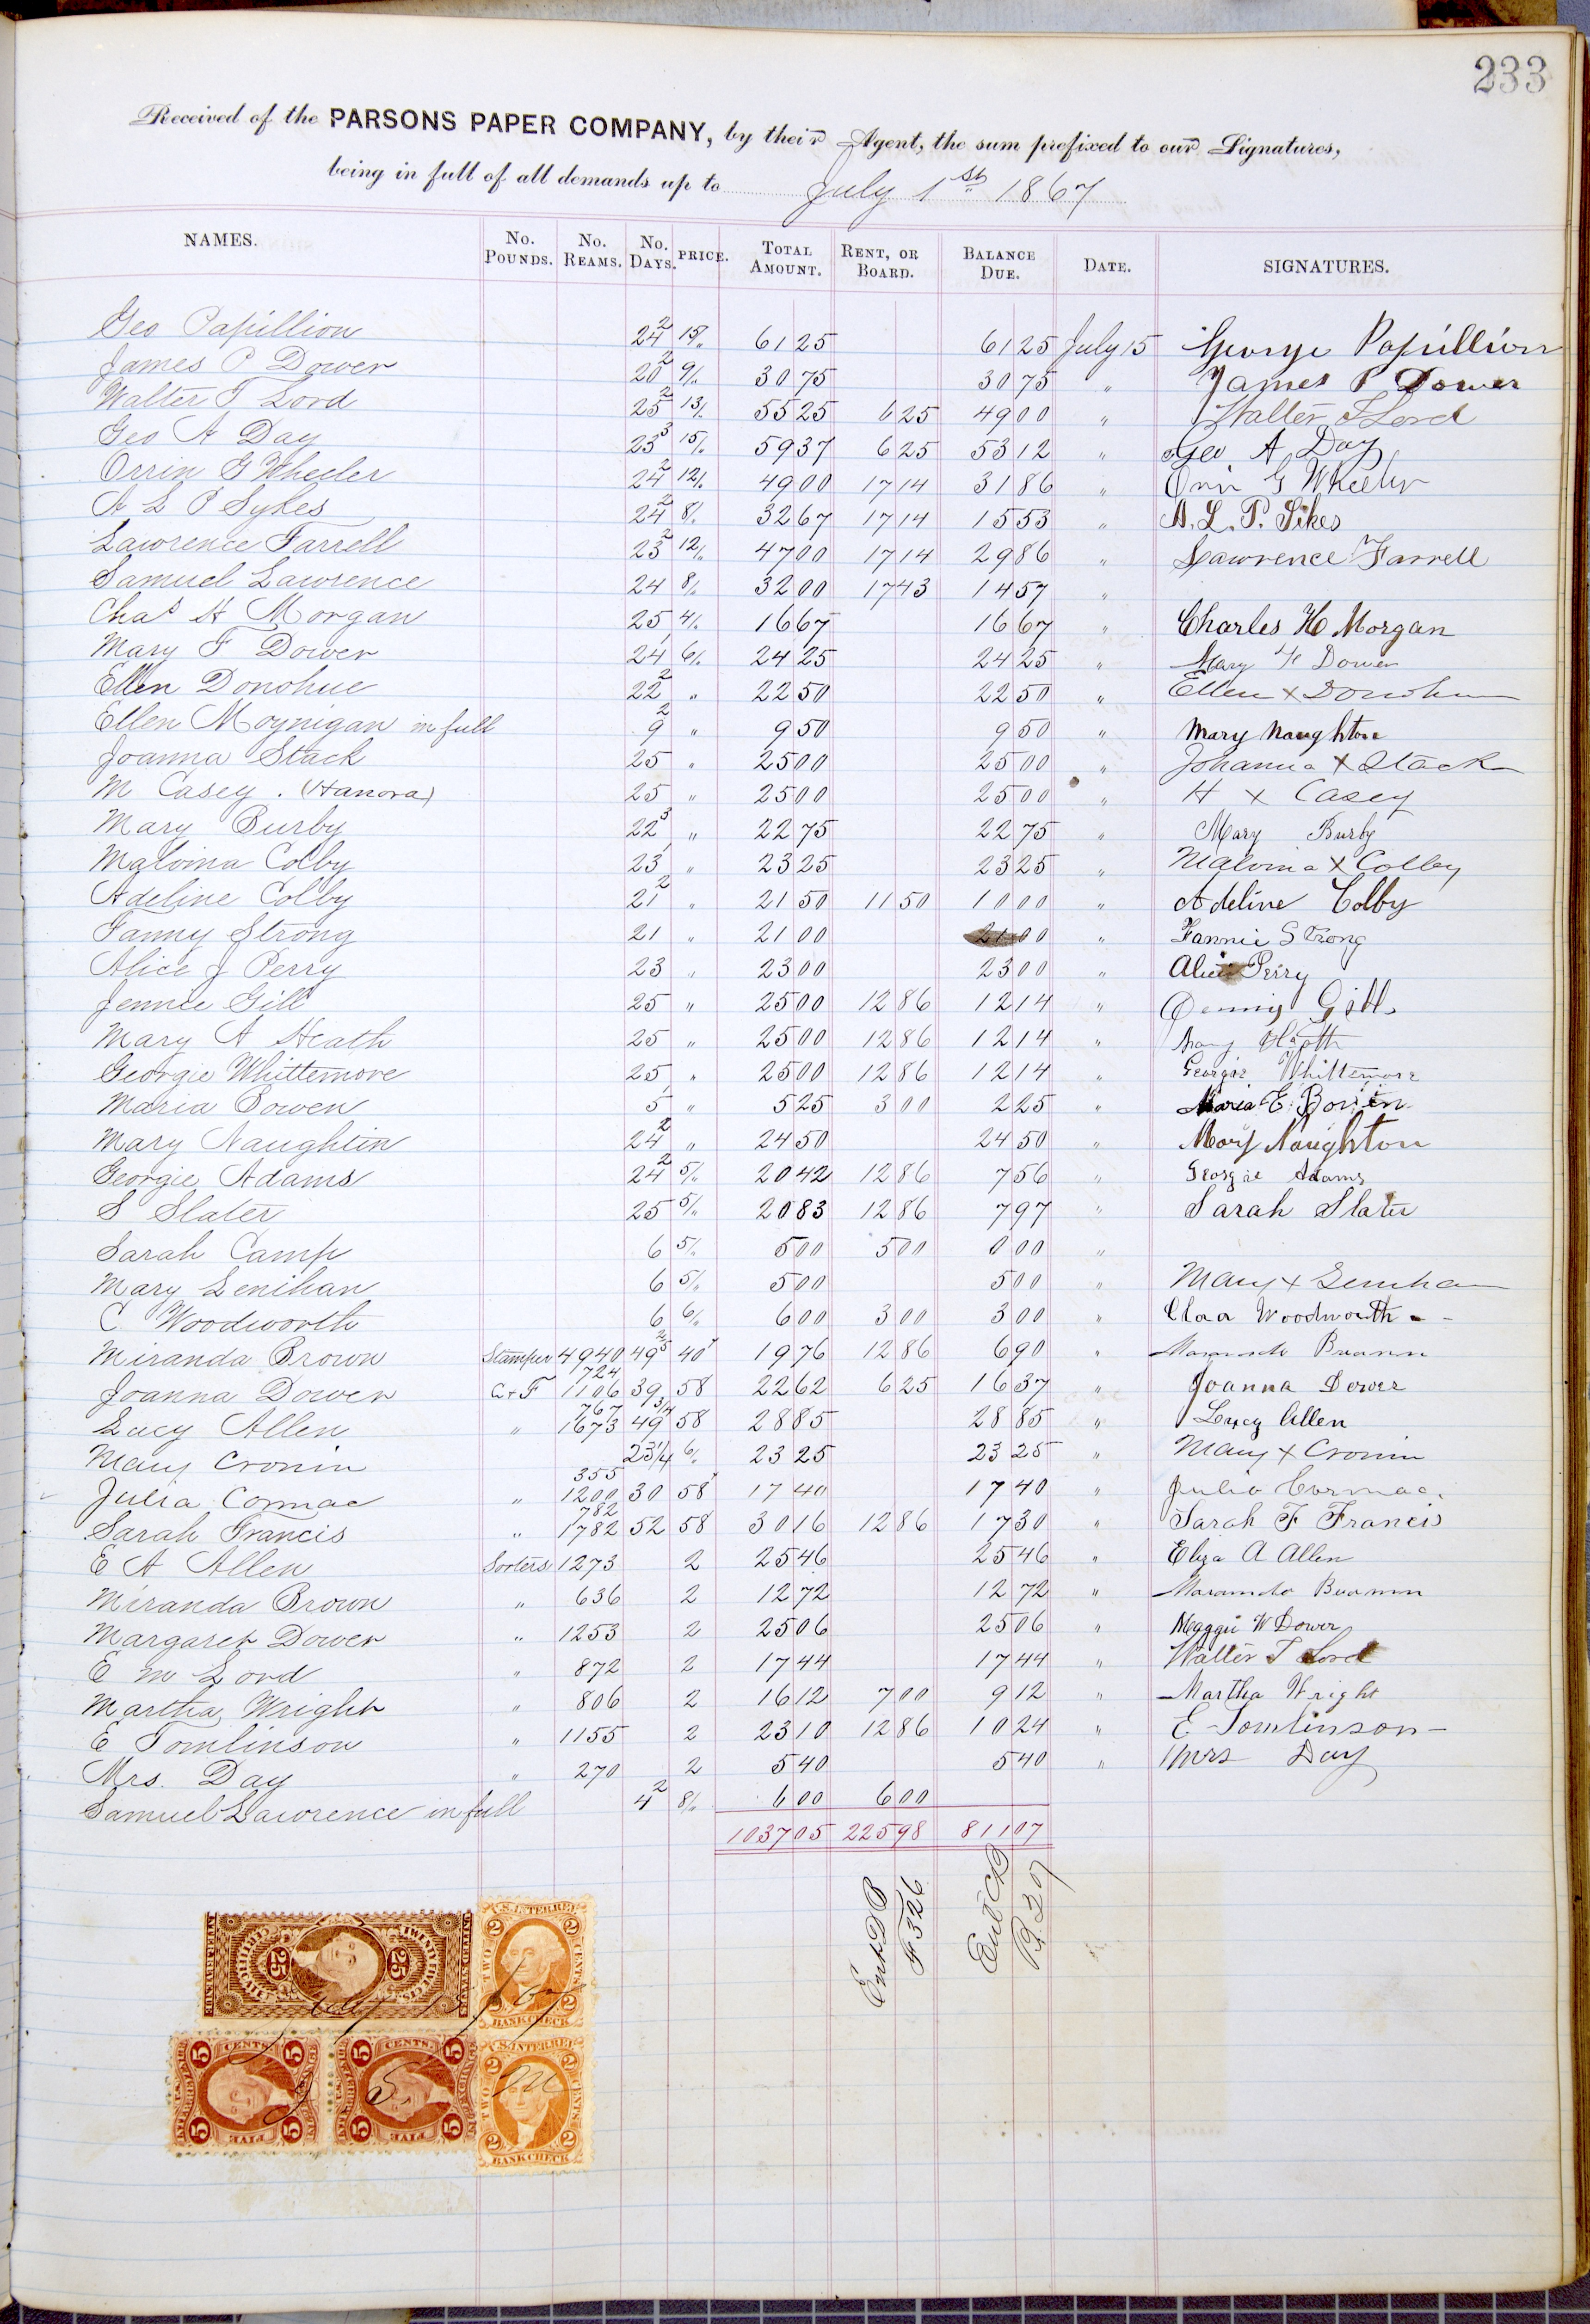 233
Received of the PARSONS PAPER COMPANY, by their Agent, the sum prefixed to our Signatures,
being in full of all demands up to July 1st 1867
NAMES. No. POUNDS. No. REAMS. No. DAYS. PRICE. TOTAL AMOUNT. RENT, OR BOARD. BALANCE DUE. DATE. SIGNATURES.
Geo Papillion 24 2 15/. 61 25 61 25 July 15 George Papillion
James P Dower 20 2 9/. 30 75 30 75 " James P Dower
Walter T Lord 25 2 13/. 55 25 6 25 49 00 " Walter T Lord
Geo A Day 23 3 15/. 59 37 6 25 53 12 " Geo A Day
Orrin G Wheeler 24 2 12/. 49 00 17 14 31 86 " Orrin G Wheeler
A L P Sykes 24 2 8/. 32 67 17 14 15 53 " A. L. P. Sikes
Lawrence Farrell 23 2 12/. 47 00 17 14 29 86 " Lawrence Farrell
Samuel Lawrence 24 8/. 32 00 17 43 14 57 "
Chas H Morgan 25 4/. 16 67 16 67 " Charles H Morgan
Mary F Dower 24 1 6/. 24 25 24 25 " Mary F Dower
Ellen Donohue 22 2 " 22 50 22 50 " Ellen x Donohue
Ellen Moynigan in full 9 2 " 9 50 9 50 " Mary Naughton
Joanna Stack 25 " 25 00 25 00 " Johanna x Stack
M Casey . (Hanora) 25 " 25 00 25 00 " H x Casey
Mary Burby 22 3 " 22 75 22 75 " Mary Burby
Malvina Colby 23 1 " 23 25 23 25 " Malvina x Colby
Adeline Colby 21 2 " 21 50 11 50 10 00 " Adeline Colby
Fanny Strong 21 " 21 00 21 00 " Fannie Strong
Alice J Perry 23 " 23 00 23 00 " Alice Perry
Jennie Gill 25 " 25 00 12 86 12 14 " Jenny Gill
Mary A Heath 25 " 25 00 12 86 12 14 " Mary Heath
Georgie Whittemore 25 " 25 00 12 86 12 14 " Georgie Whittemore
Maria Bowen 5 1 " 5 25 3 00 2 25 " Maria E. Bowen
Mary Naughtin 24 2 " 24 50 24 50 " Mary Naughton
Georgie Adams 24 2 5/. 20 42 12 86 7 56 " Georgie Adams
S Slater 25 5/. 20 83 12 86 7 97 " Sarah Slater
Sarah Camp 6 5/. 5 00 5 00 0 00 "
Mary Lenihan 6 5/. 5 00 5 00 " Mary x Lenihan
C Woodworth 6 6/. 6 00 3 00 3 00 " Clara Woodworth
Miranda Brown Stamper 4940 49 2/5 40 19 76 12 86 6 90 " Maranda Brown
Joanna Dower C & F 724 1106 39 58 22 62 6 25 16 37 " Joanna Dower
Lucy Allen " 767 1673 49 3/4 58 28 85 28 85 " Lucy Allen
Mary Cronin 23 1/4 6/. 23 25 23 25 " Mary x Cronin
Julia Cormac " 355 1200 30 58 17 40 17 40 " Julia Cormac.
Sarah Francis " 782 1782 52 58 30 16 12 86 17 30 " Sarah F Francis
E A Allen Sorters 1273 2 25 46 25 46 " Eliza A Allen
Miranda Brown " 636 2 12 72 12 72 " Maranda Brown
Margaret Dower " 1253 2 25 06 25 06 " Maggie W Dower
E M Lord " 872 2 17 44 17 44 " Walter T Lord
Martha Wright " 806 2 16 12 7 00 9 12 " Martha Wright
E Tomlinson " 1155 2 23 10 12 86 10 24 " E Tomlinson
Mrs. Day " 270 2 5 40 5 40 " Mrs Day
Samuel Lawrence in full 4 2 8/. 6 00 6 00
1037 05 225 98 811 07
Ent DB F 326
Ent CB P. 207
UNITED STATES TWENTY FIVE CENTS 25 25 INTER. REVENUE
U.S. INTER. REV. 2 2 TWO CENTS 2 2 BANK CHECK
U.S. INTER. REV. 2 2 TWO CENTS 2 2 BANK CHECK
5 CENTS. 5 5 FIVE 5
5 CENTS. 5 5 FIVE 5
July 15/67